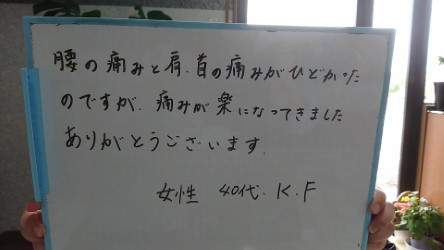 腰の痛みと肩、首の痛みがひどかった
のですが、痛みが楽になってきました
ありがとうございます。
女性 40代. K.F